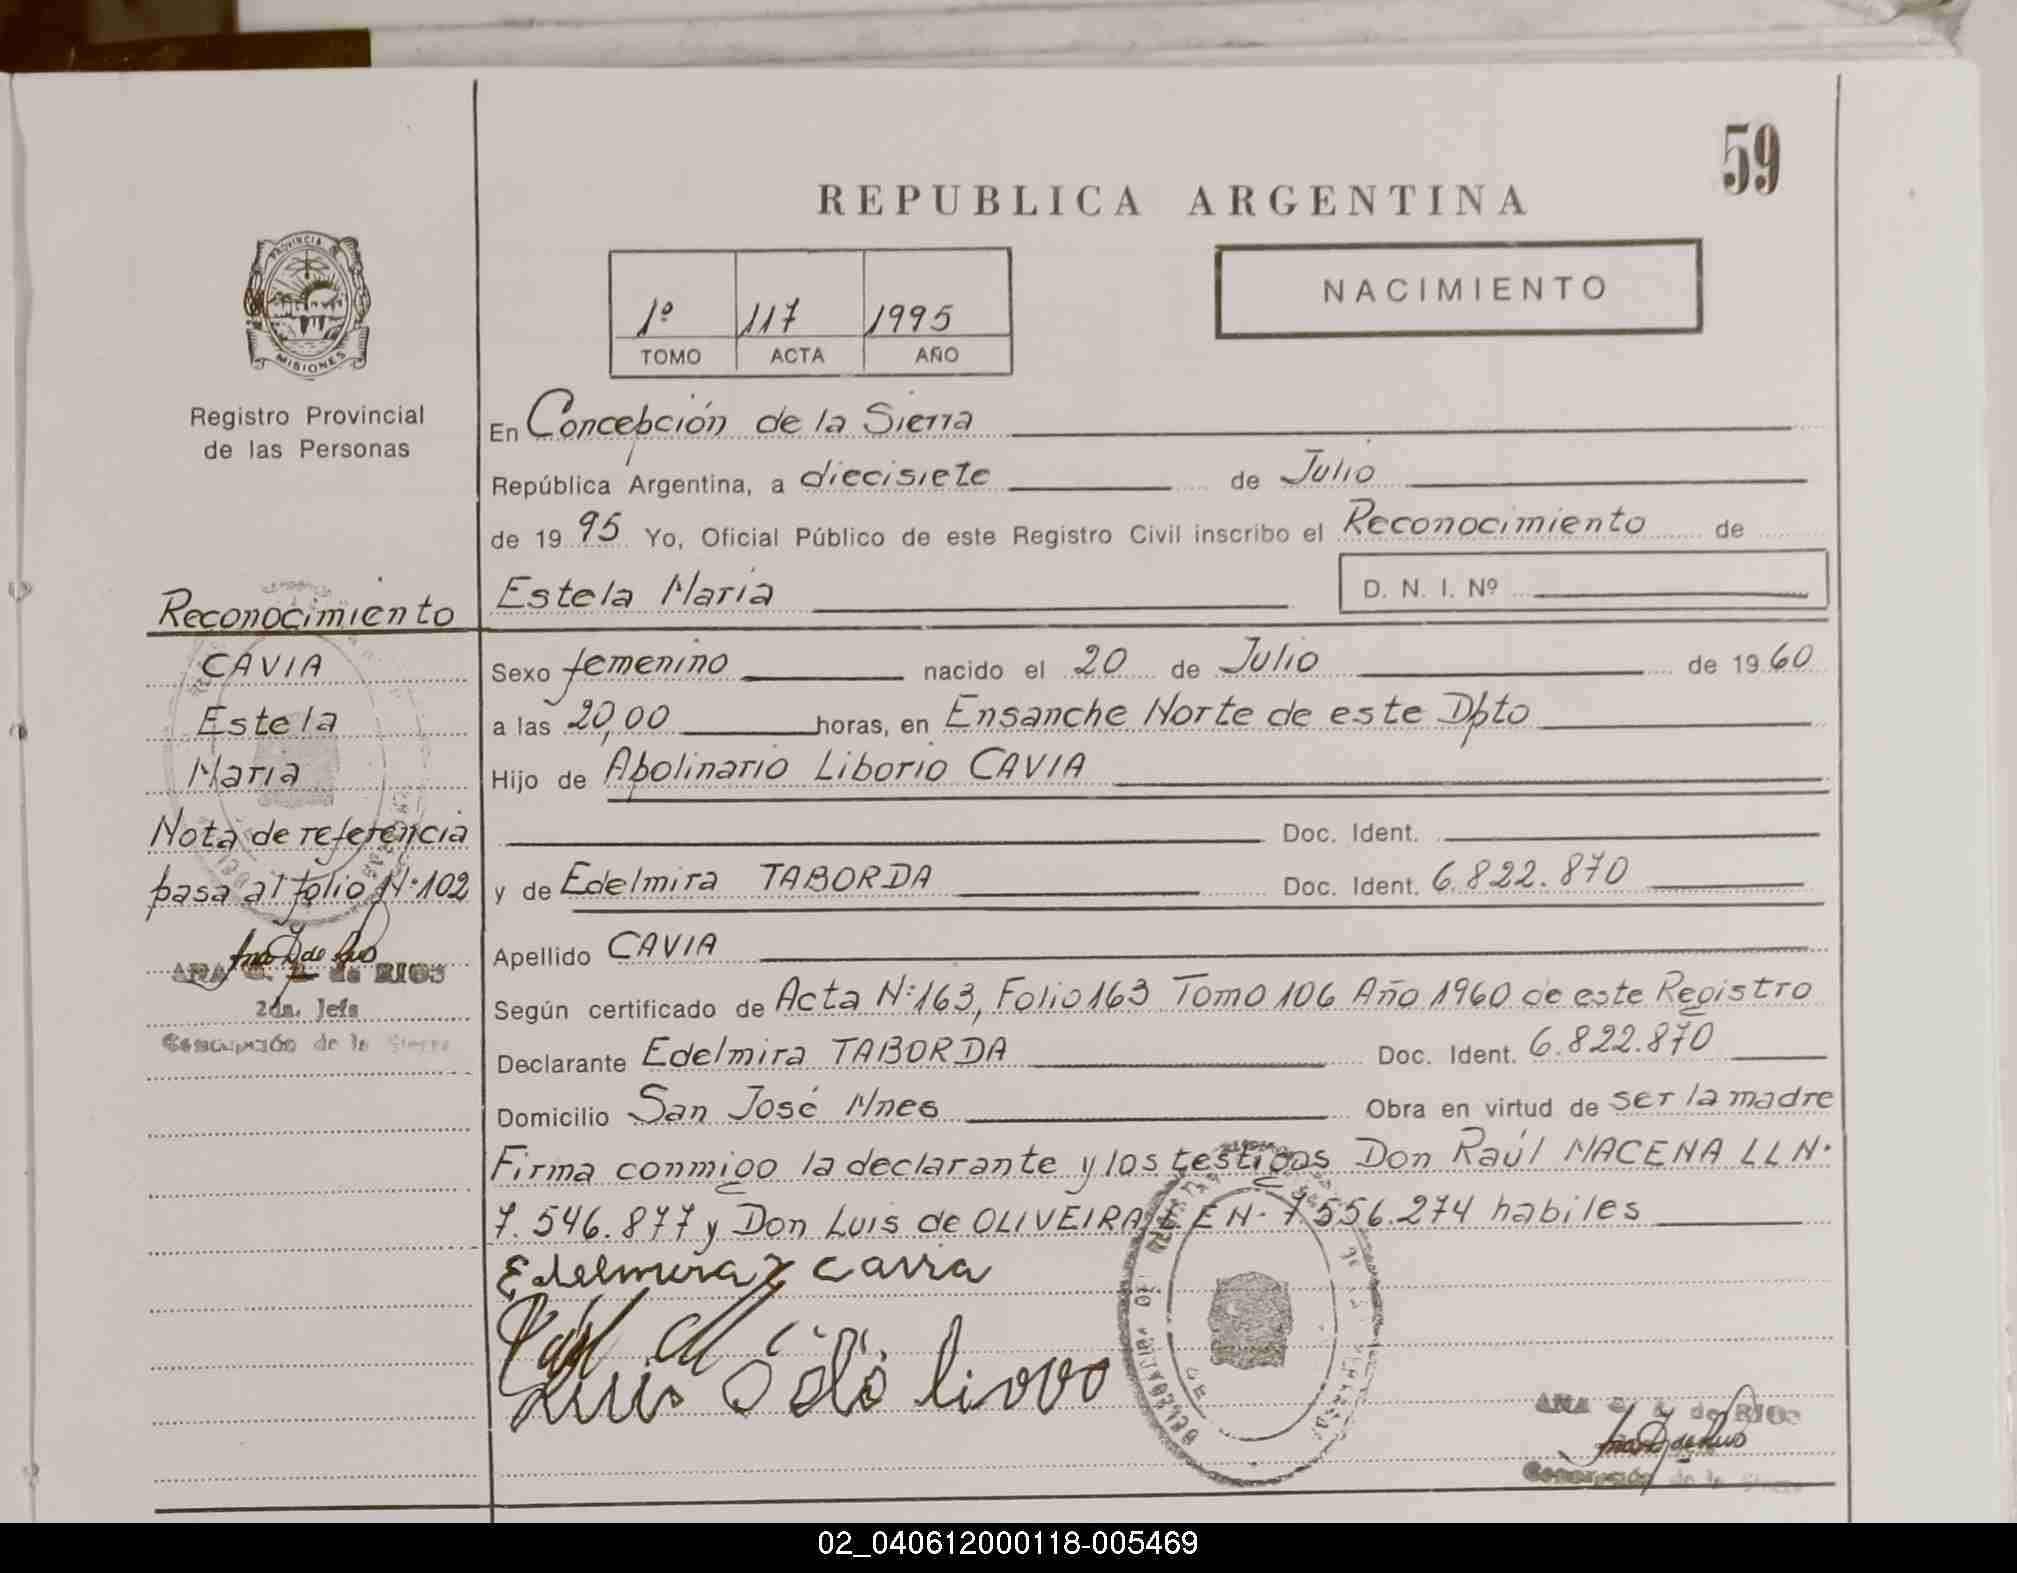 59
REPUBLICA ARGENTINA
PROVINCIA DE
MISIONES
1º 117 1995
TOMO ACTA AÑO
NACIMIENTO
Registro Provincial
de las Personas
En Concepción de la Sierra
República Argentina, a diecisiete de Julio
de 19 95 Yo, Oficial Público de este Registro Civil inscribo el Reconocimiento de
Estela Maria D. N. I. Nº
Sexo femenino nacido el 20 de Julio de 19 60
a las 20,00 horas, en Ensanche Norte de este Dpto
Hijo de Apolinario Liborio CAVIA
Doc. Ident.
y de Edelmira TABORDA Doc. Ident. 6.822.870
Apellido CAVIA
Según certificado de Acta Nº 163, Folio 163 Tomo 106 Año 1960 de este Registro
Declarante Edelmira TABORDA Doc. Ident. 6.822.870
Domicilio San José Mnes Obra en virtud de ser la madre
Firma conmigo la declarante y los testigos Don Raúl MACENA LL N·
7.546.877 y Don Luis de OLIVEIRA L EN· 7.556.274 habiles
Edelmira T Cavia
Luis
ANA de RIOS
Concepción de la Sierra
Reconocimiento
CAVIA
Estela
Maria
Nota de referencia
pasa al folio Nº 102
ANA de RIOS
2da. Jefa
Concepción de la Sierra
02_040612000118-005469